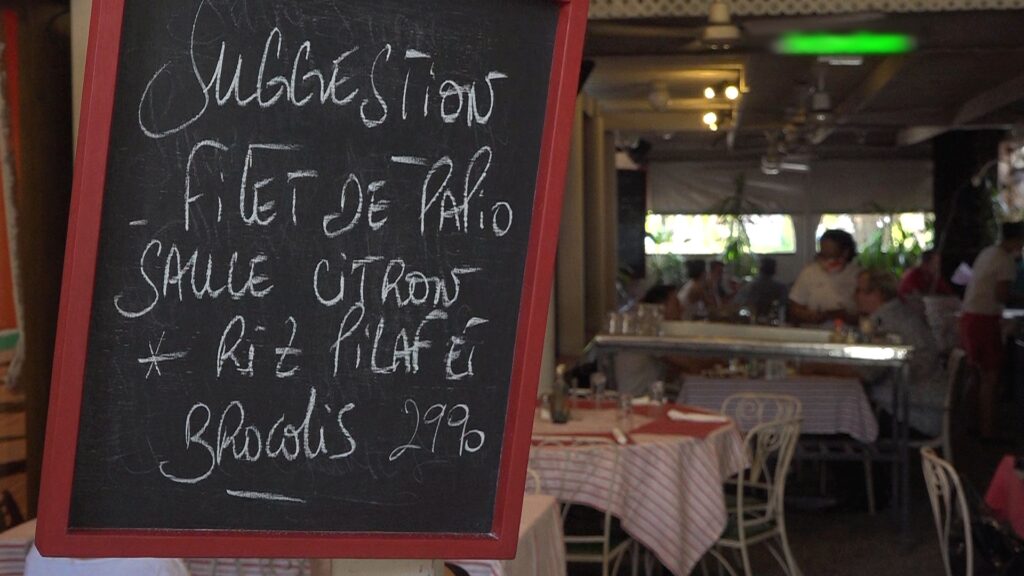 SUGGESTION
- FILET DE PAPIO
SAUCE CITRON
* RIZ PILAF Et
BROCOLIS 2990